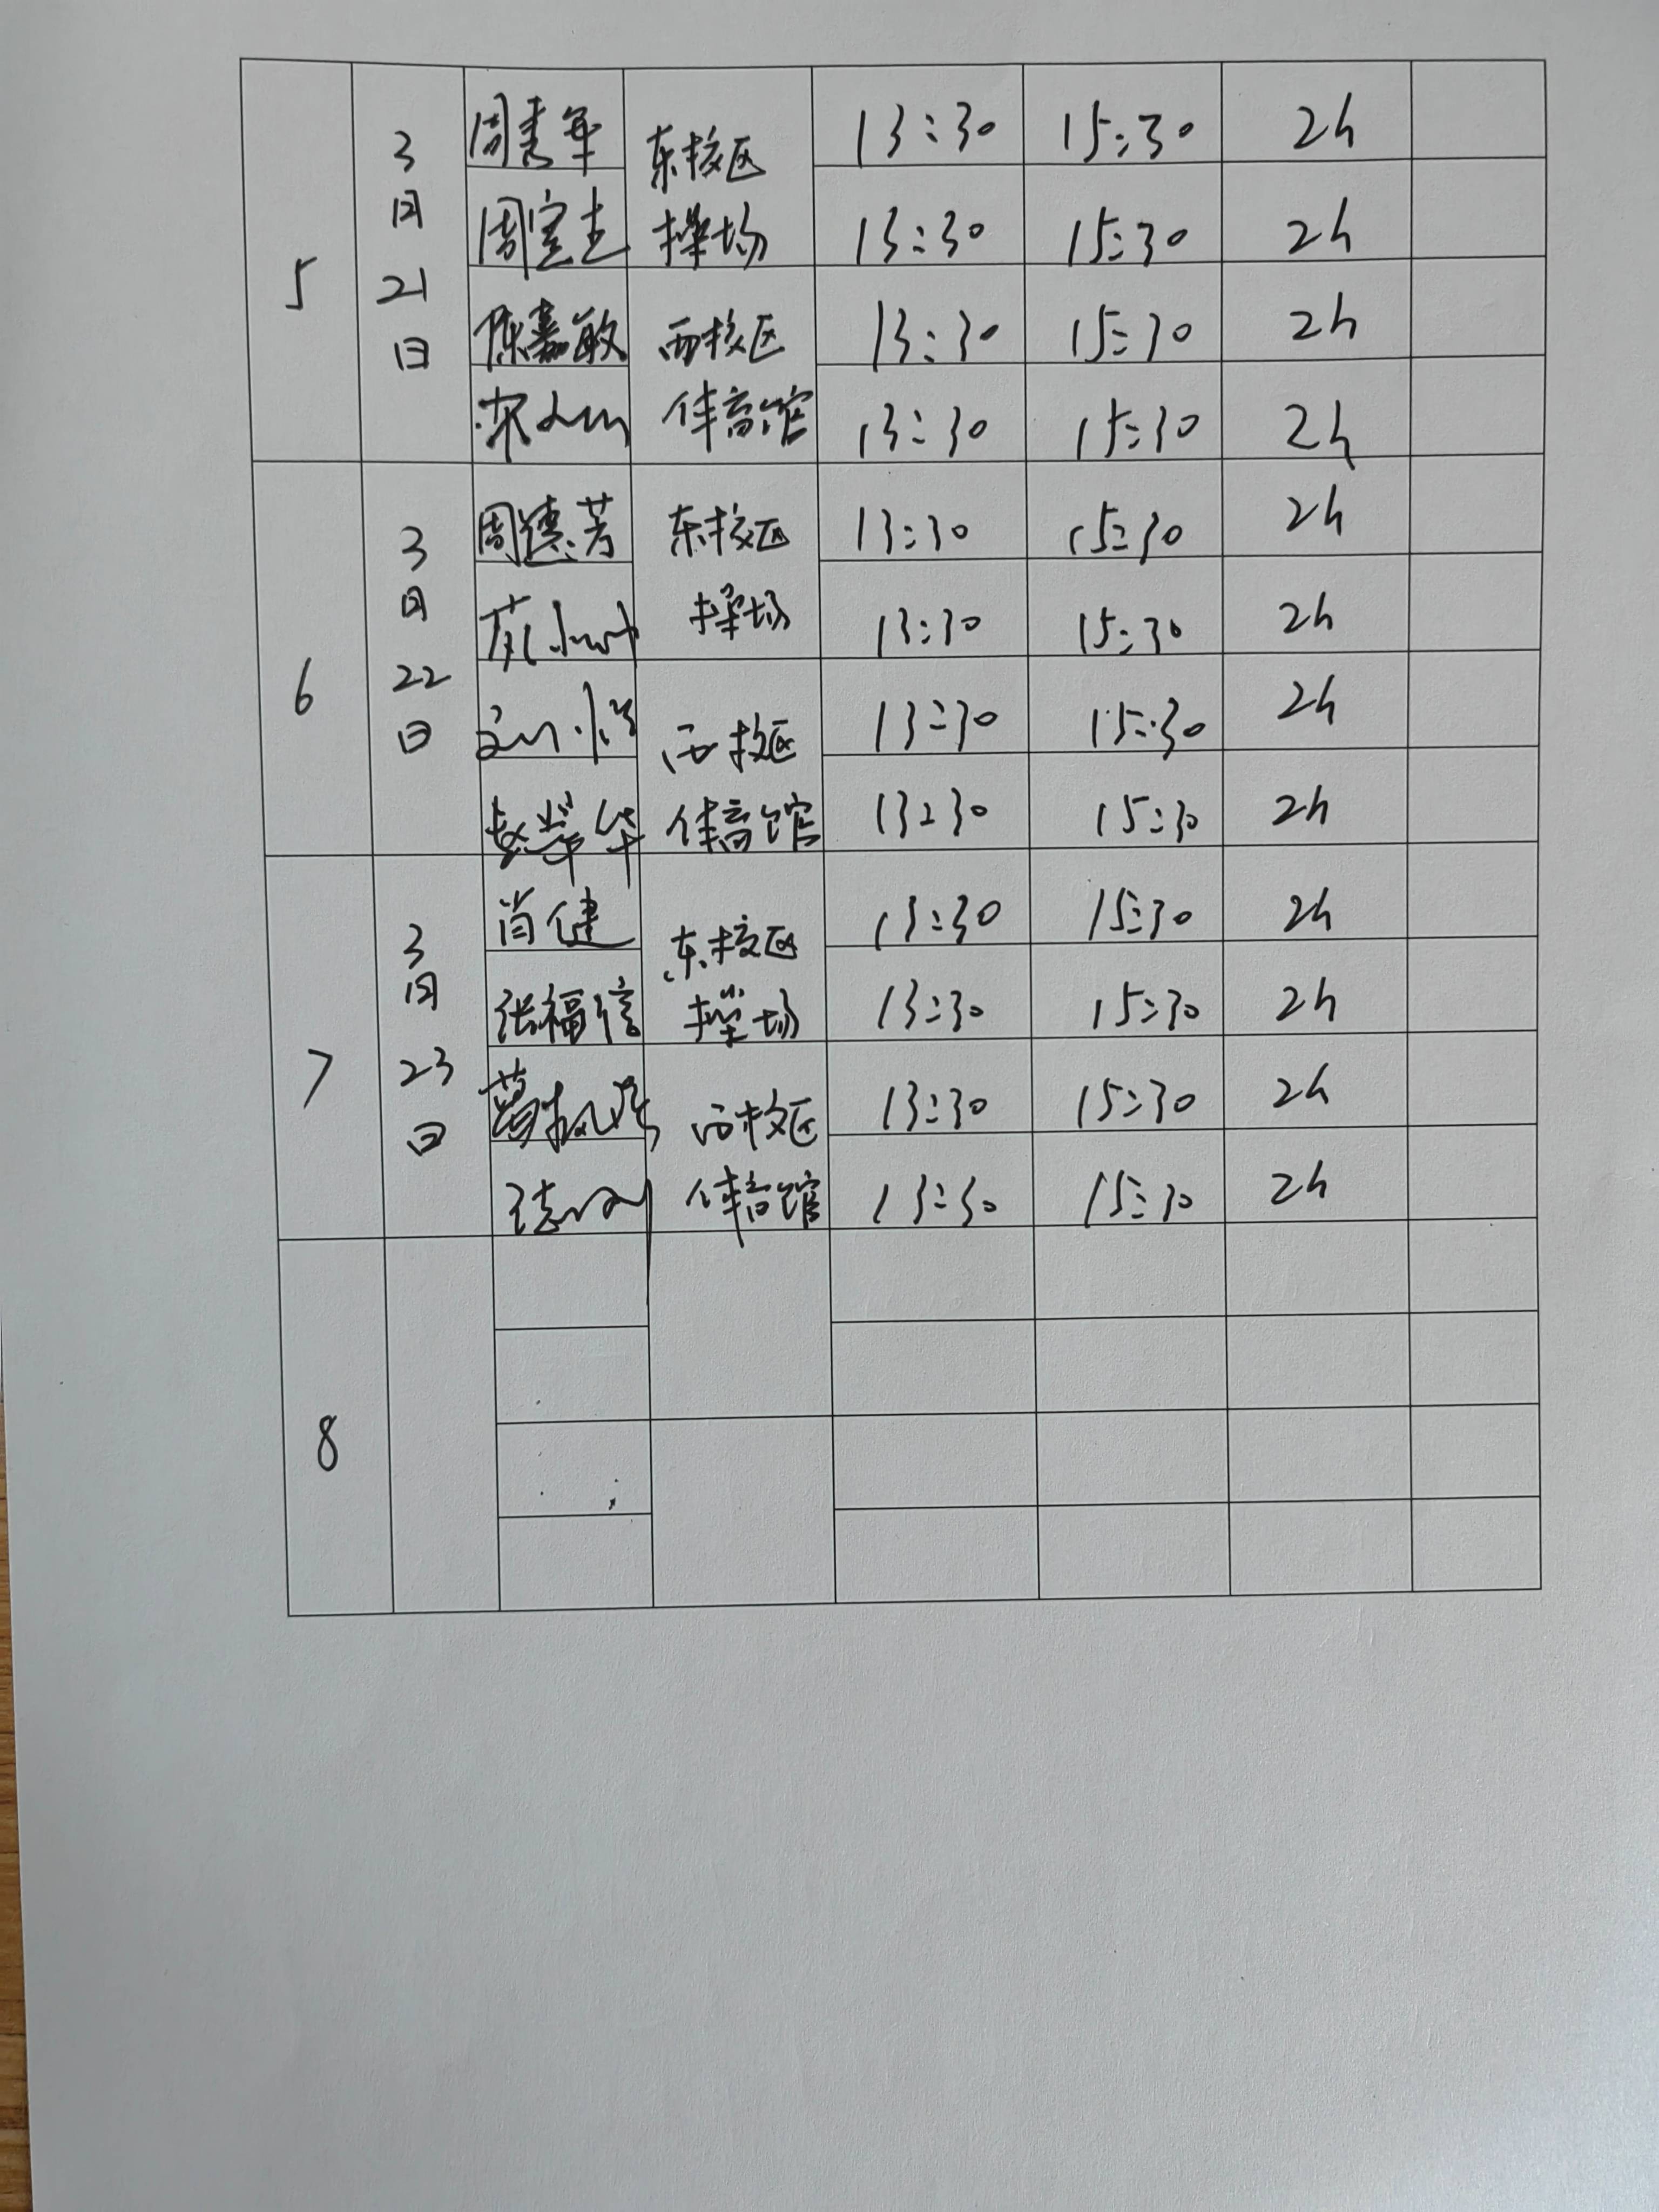 5
3
月
21
日
周青年 东校区 13:30 15:30 2h
周宝 操场 13:30 15:30 2h
陈嘉敏 西校区 13:30 15:30 2h
体育馆 13:30 15:30 2h
6
3
月
22
日
周德芳 东校区 13:30 15:30 2h
操场 13:30 15:30 2h
西校区 13:30 15:30 2h
体育馆 13:30 15:30 2h
7
3
月
23
日
肖健 东校区 13:30 15:30 2h
张福信 操场 13:30 15:30 2h
西校区 13:30 15:30 2h
体育馆 13:30 15:30 2h
8